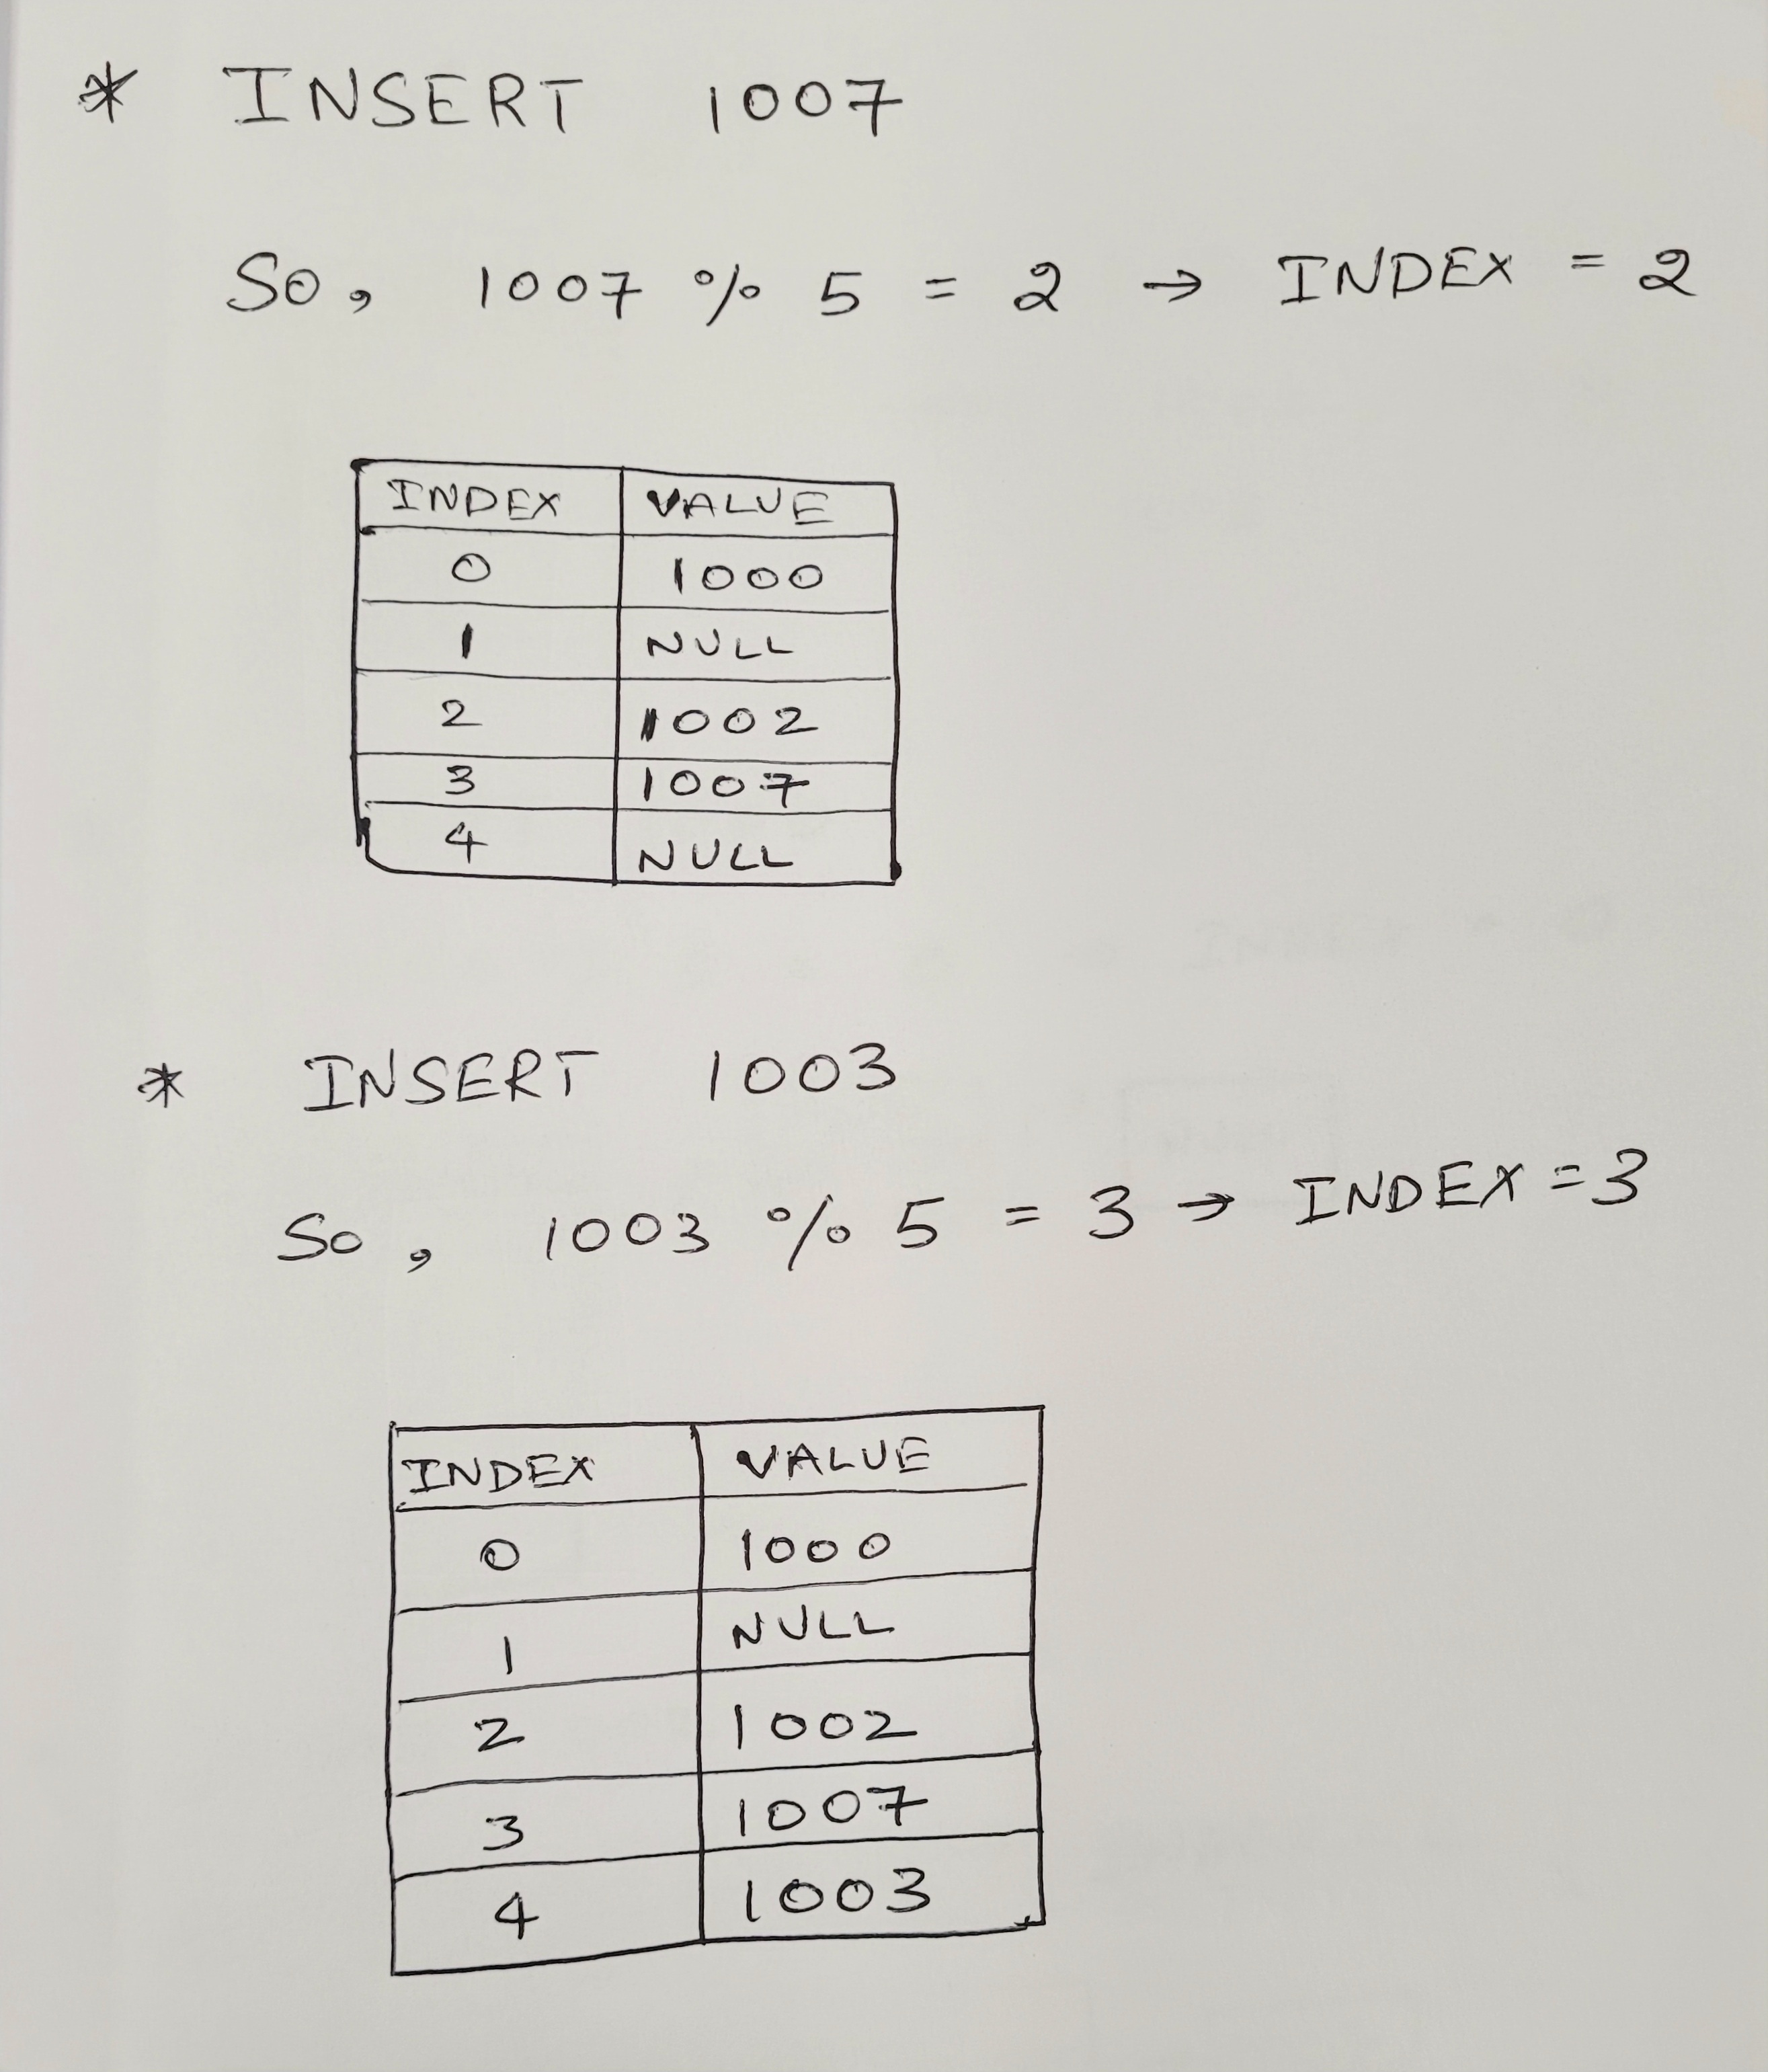 * INSERT 1007
So, 1007 % 5 = 2 → INDEX = 2
INDEX VALUE
0 1000
1 NULL
2 1002
3 1007
4 NULL
* INSERT 1003
So, 1003 % 5 = 3 → INDEX = 3
INDEX VALUE
0 1000
1 NULL
2 1002
3 1007
4 1003